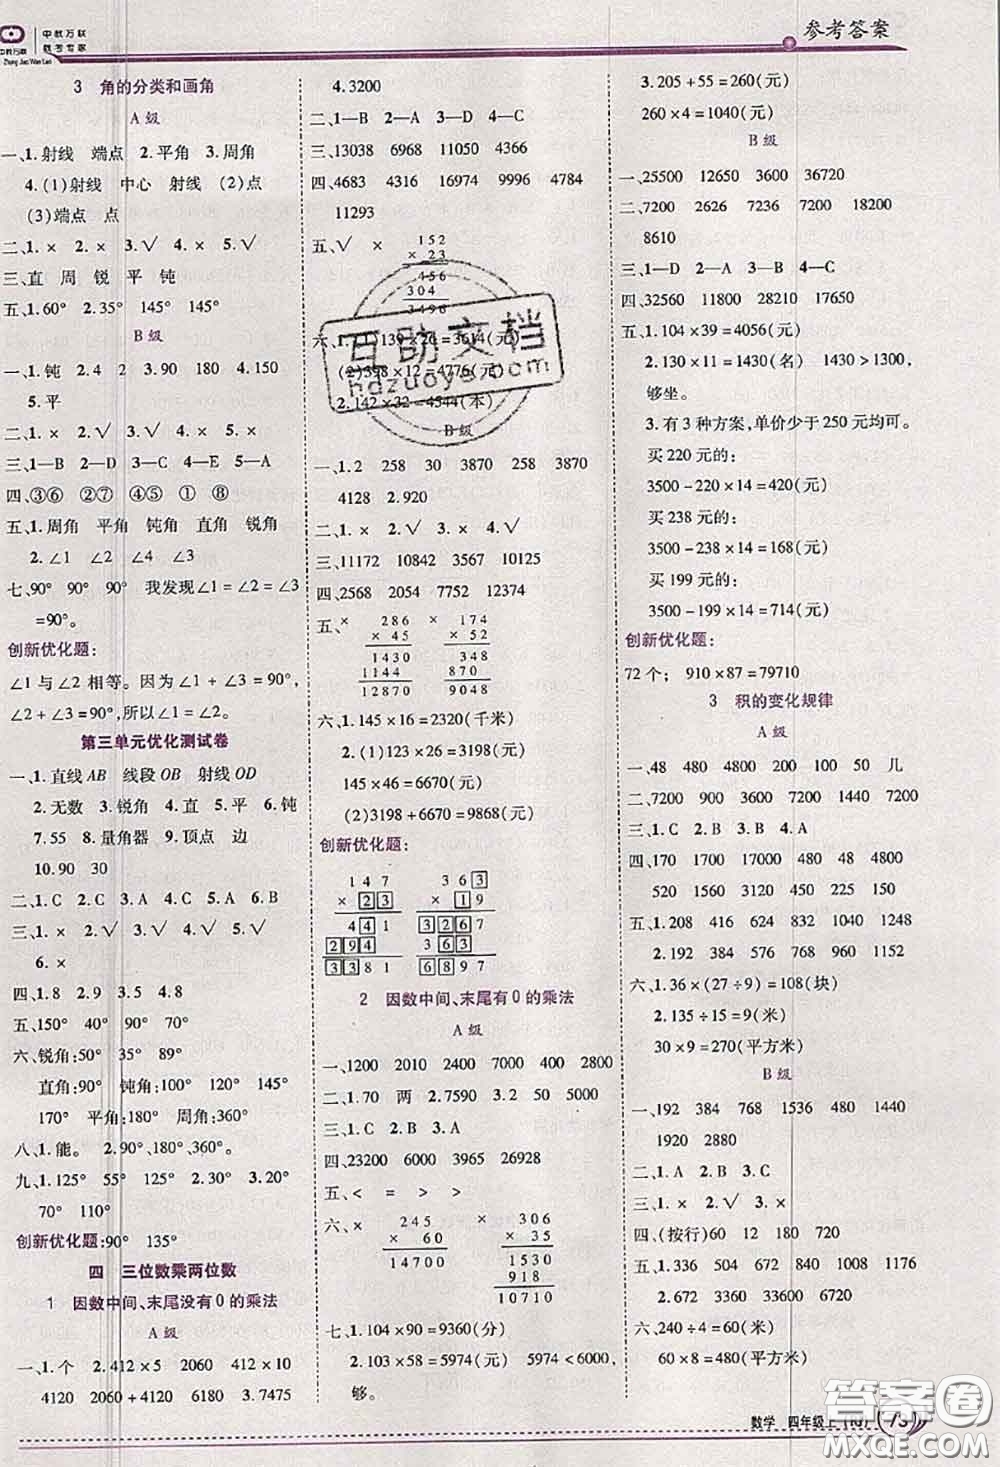 中教万联
教考专家
中教万联
Zhong Jiao Wan Lian
参考答案
3 角的分类和画角
A级
一、1.射线 端点 2.平角 3.周角
4.(1)射线 中心 射线 (2)点
(3)端点 点
二、1.× 2.× 3.√ 4.× 5.√
三、直 周 锐 平 钝
五、1.60° 2.35° 145° 145°
B级
一、1.钝 2.4 2 3.90 180 4.150
5.平
二、1.× 2.√ 3.√ 4.× 5.×
三、1—B 2—D 3—C 4—E 5—A
四、③⑥ ②⑦ ④⑤ ① ⑧
五、1.周角 平角 钝角 直角 锐角
2.∠1 ∠2 ∠4 ∠3
七、90° 90° 90° 我发现∠1=∠2=∠3
=90°。
创新优化题:
∠1与∠2相等。因为∠1+∠3=90°,
∠2+∠3=90°,所以∠1=∠2。
第三单元优化测试卷
一、1.直线AB 线段OB 射线OD
2.无数 3.锐角 4.直 5.平 6.钝
7.55 8.量角器 9.顶点 边
10.90 30
二、1.C 2.C 3.A 4.C 5.A 6.B
三、1.× 2.√ 3.√ 4.√ 5.√
6.×
四、1.8 2.9 3.5 4.8
五、150° 40° 90° 70°
六、锐角:50° 35° 89°
直角:90° 钝角:100° 120° 145°
170° 平角:180° 周角:360°
八、1.能。 2.90°、180°、360°。
九、1.125° 55° 125° 2.30° 3.20°
70° 110°
创新优化题:90° 135°
四 三位数乘两位数
1 因数中间、末尾没有0的乘法
A级
一、1.个 2.412×5 2060 412×10
4120 2060+4120 6180 3.7475
4.3200
二、1—B 2—A 3—D 4—C
三、13038 6968 11050 4366
四、4683 4316 16974 9996 4784
11293
五、√ × 152
× 23
456
304
3496
六、1.(1)139×26=3614(元)
(2)398×12=4776(元)
2.142×32=4544(本)
互助文档
hdzuoye.com
B级
一、1.2 258 30 3870 258 3870
4128 2.920
二、1.× 2.√ 3.× 4.√
三、11172 10842 3567 10125
四、2568 2054 7752 12374
五、× 286 × 174
× 45 × 52
1430 348
1144 870
12870 9048
六、1.145×16=2320(千米)
2.(1)123×26=3198(元)
145×46=6670(元)
(2)3198+6670=9868(元)
创新优化题:
147 363
× 23 × 19
441 3267
294 363
3381 6897
2 因数中间、末尾有0的乘法
A级
一、1200 2010 2400 7000 400 2800
二、1.70 两 2.7590 3.2 50 5000
三、1.C 2.B 3.A
四、23200 6000 3965 26928
五、< = > >
六、× 245 × 306
× 60 × 35
14700 1530
918
10710
七、1.104×90=9360(分)
2.103×58=5974(元) 5974<6000,
够。
3.205+55=260(元)
260×4=1040(元)
B级
一、25500 12650 3600 36720
二、7200 2626 7236 7200 18200
8610
三、1—D 2—A 3—B 4—C
四、32560 11800 28210 17650
五、1.104×39=4056(元)
2.130×11=1430(名) 1430>1300,
够坐。
3.有3种方案,单价少于250元均可。
买220元的:
3500-220×14=420(元)
买238元的:
3500-238×14=168(元)
买199元的:
3500-199×14=714(元)
创新优化题:
72个; 910×87=79710
3 积的变化规律
A级
一、48 480 4800 200 100 50 几
二、7200 900 3600 7200 1440 7200
三、1.C 2.B 3.B 4.A
四、170 1700 17000 480 48 4800
520 1560 260 2600 1300
五、1.208 416 624 832 1040 1248
2.192 384 576 768 960 3840
六、1.36×(27÷9)=108(块)
2.135÷15=9(米)
30×9=270(平方米)
B级
一、192 384 768 1536 480 1440
1920 2880
二、1.A 2.B 3.C
三、1.× 2.√ 3.×
四、(按行)60 12 180 720
五、1.336 504 588 1008 1176
2.672 3360 33600 6720
六、240÷4=60(米)
60×8=480(平方米)
数学 四年级上(RJ) 73
答案圈
MXQE.COM